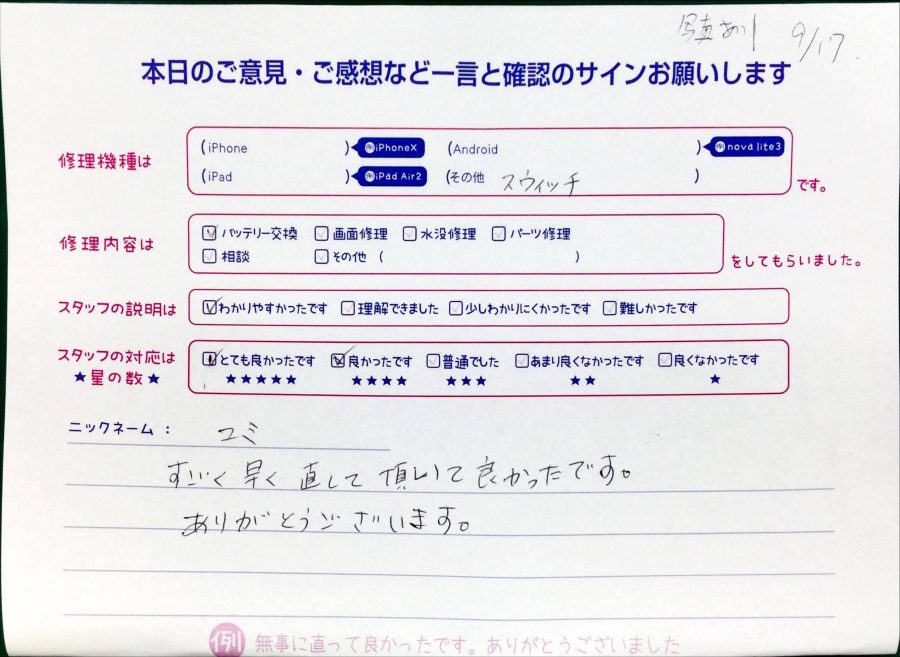 写真あり 9/17
本日のご意見・ご感想など一言と確認のサインお願いします
修理機種は
(iPhone ) 例iPhoneX (Android ) 例nova lite3
(iPad ) 例iPad Air2 (その他 スウィッチ )
です。
修理内容は
バッテリー交換 画面修理 水没修理 パーツ修理
相談 その他 ( )
をしてもらいました。
スタッフの説明は わかりやすかったです 理解できました 少しわかりにくかったです 難しかったです
スタッフの対応は とても良かったです 良かったです 普通でした あまり良くなかったです 良くなかったです
★星の数★ ★★★★★ ★★★★ ★★★ ★★ ★
ニックネーム： ユミ
すごく早く直して頂いて良かったです。
ありがとうございます。
例 無事に直って良かったです。ありがとうございました